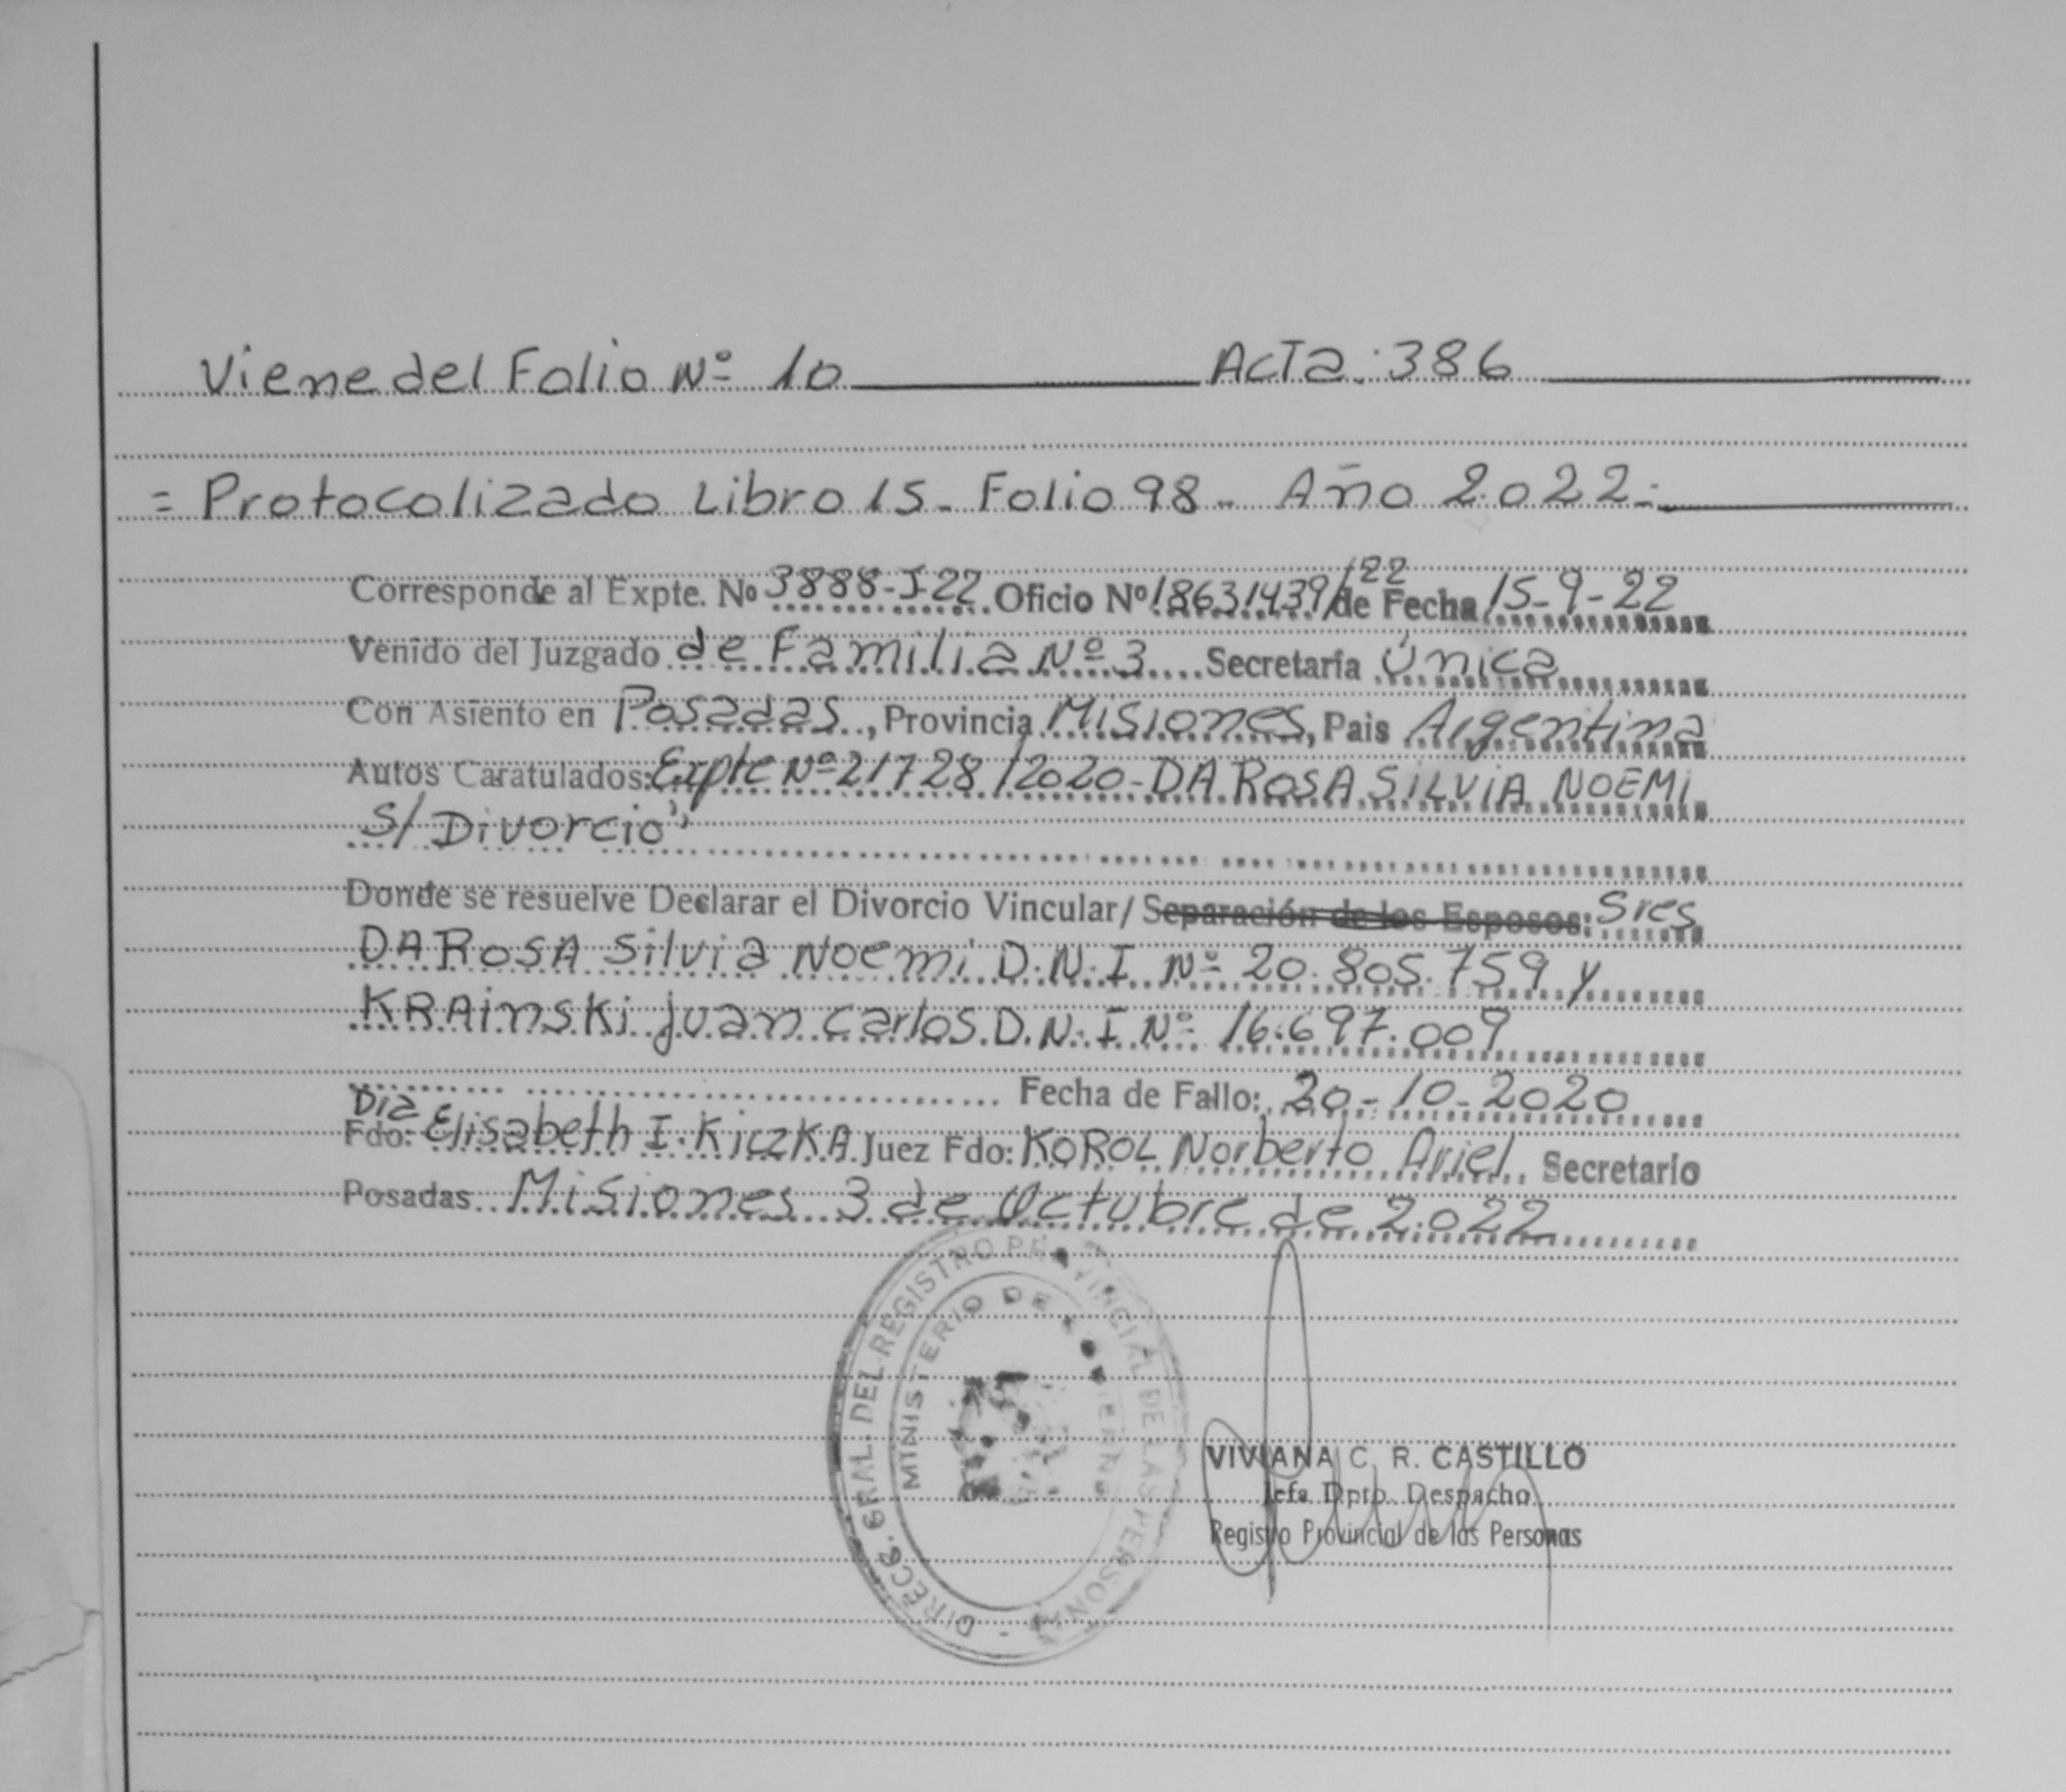 Viene del Folio Nº 10 Acta: 386
= Protocolizado Libro 15 - Folio 98 - Año 2.022 -
Corresponde al Expte. No 3888-J-22 Oficio Nº 18631439/22 de Fecha 15-9-22
Venido del Juzgado de Familia Nº 3 Secretaría Única
Con Asiento en Posadas, Provincia Misiones, Pais Argentina
Autos Caratulados: Expte Nº 21728/2020 - DA ROSA SILVIA NOEMI
S/ Divorcio"
Donde se resuelve Declarar el Divorcio Vincular/ Separación de los Esposos: Sres
DA ROSA Silvia Noemi D.N.I Nº 20.805.759 y
KRAINSKi Juan Carlos D.N.I Nº 16.697.009
Fecha de Fallo: 20-10-2020
Dra
Fdo: Elisabeth I. KiczKA Juez Fdo: KOROL Norberto Ariel Secretario
Posadas Misiones 3 de Octubre de 2.022
DIREC. GRAL. DEL REGISTRO PROVINCIAL DE LAS PERSONAS -
MINISTERIO DE GOBIERNO
VIVIANA C. R. CASTILLO
Jefa Dpto. Despacho
Registro Provincial de las Personas